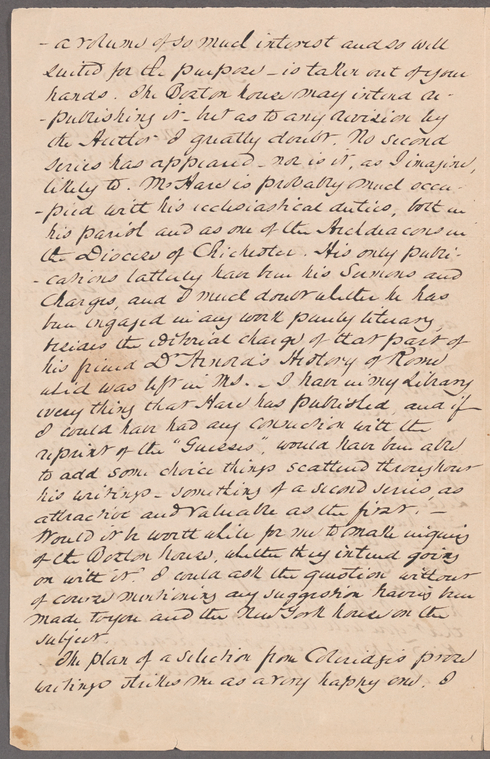 - a volume of so much interest and so well
suited for the purpose - is taken out of your
hands. The Boston house may intend re-
-publishing it - but as to any revision by
the Author I greatly doubt. No second
series has appeared - nor is it, as I imagine,
likely to. Mr Hare is probably much occu-
-pied with his ecclesiastical duties, both in
his parish and as one of the Archdeacons in
the Diocese of Chichester. His only publi-
-cations latterly have been his Sermons and
Charges, and I much doubt whether he has
been engaged in any work purely literary,
besides the editorial charge of that part of
his friend Dr Arnold's History of Rome
which was left in Ms. - I have in my Library
every thing that Hare has published, and if
I could have had any connection with the
reprint of the "Guesses", would have been able
to add some choice things scattered throughout
his writings - something of a second series, as
attractive and valuable as the first. -
Would it be worth while for me to make inquiry
of the Boston house, whether they intend going
on with it? I could ask the question without
of course mentioning any suggestion having been
made to you and the New York house on the
subject.
The plan of a selection from Coleridge's prose
writings strikes me as a very happy one. I